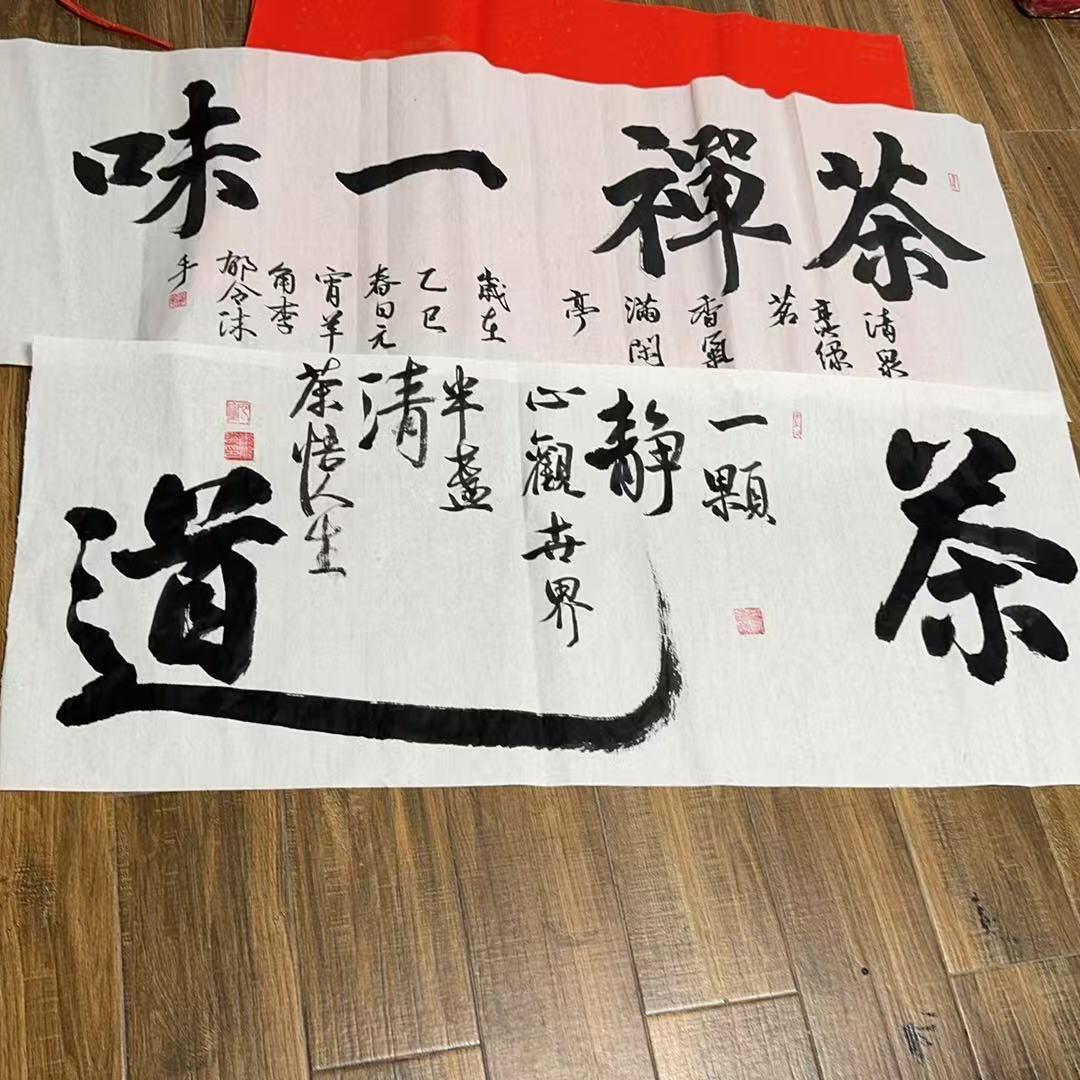 茶禪一味
清泉
烹绿
茗
香氣
滿閑
亭
歲在
乙巳
春日元
宵羊
角李
郁令沐
手
茶道
一顆
静
心觀世界
半盞
清
茶悟人生